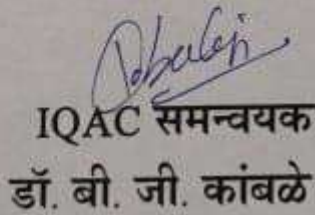 IQAC समन्वयक
डॉ. बी. जी. कांबळे